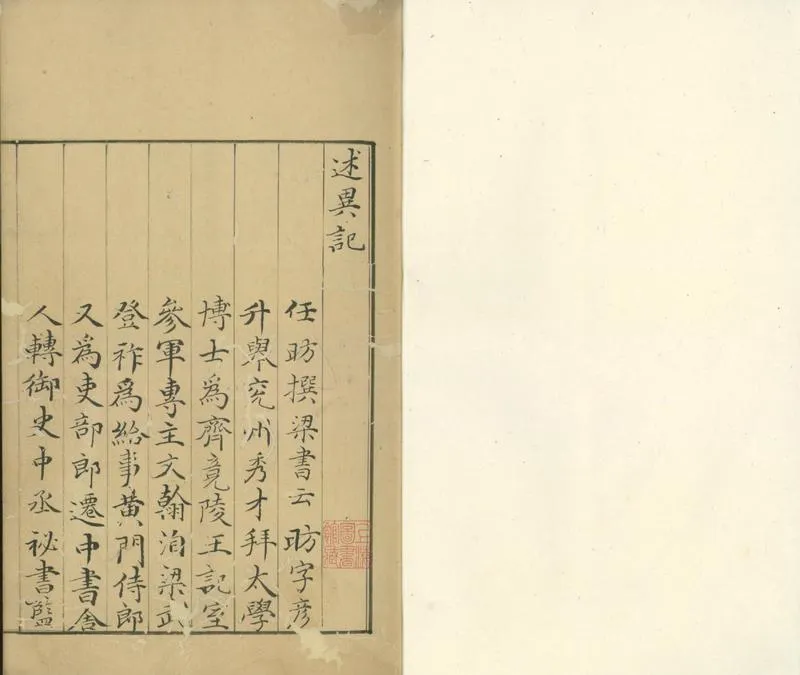 述異記
任昉撰梁書云昉字彥
升舉兖州秀才拜太學
博士爲齊竟陵王記室
參軍專主文翰洎梁武
登祚爲給事黄門侍郎
又爲吏部郎遷中書舍
人轉御史中丞祕書監